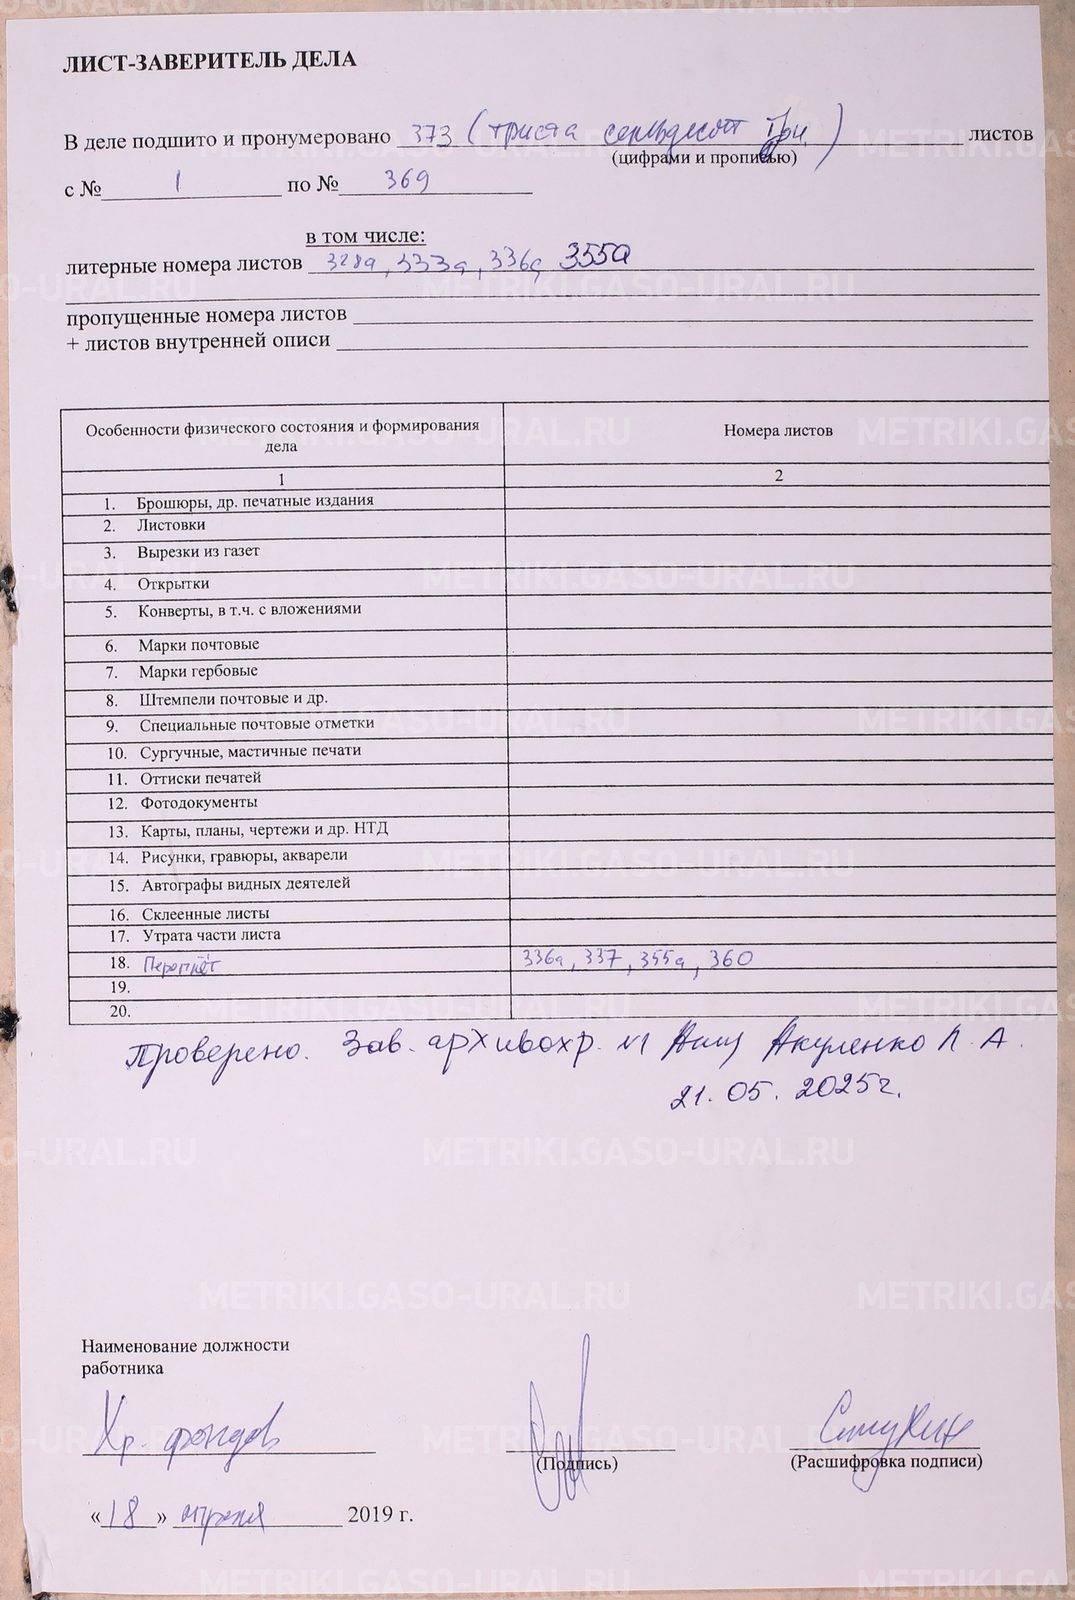 ЛИСТ-ЗАВЕРИТЕЛЬ ДЕЛА
В деле подшито и пронумеровано 373 (триста семьдесят три) листов
(цифрами и прописью)
с № 1 по № 369
в том числе:
литерные номера листов 328а, 333а, 336а, 355а
пропущенные номера листов
+ листов внутренней описи
Особенности физического состояния и формирования дела Номера листов
1 2
1. Брошюры, др. печатные издания
2. Листовки
3. Вырезки из газет
4. Открытки
5. Конверты, в т.ч. с вложениями
6. Марки почтовые
7. Марки гербовые
8. Штемпели почтовые и др.
9. Специальные почтовые отметки
10. Сургучные, мастичные печати
11. Оттиски печатей
12. Фотодокументы
13. Карты, планы, чертежи и др. НТД
14. Рисунки, гравюры, акварели
15. Автографы видных деятелей
16. Склеенные листы
17. Утрата части листа
18. Переплёт 336а, 337, 355а, 360
19.
20.
Проверено. Зав. архивохр. №1 Акуленко Л. А.
21.05.2025г.
Наименование должности
работника
Хр. фондов
(Подпись) (Расшифровка подписи)
«18» апреля 2019 г.
METRIKI.GASO-URAL.RU